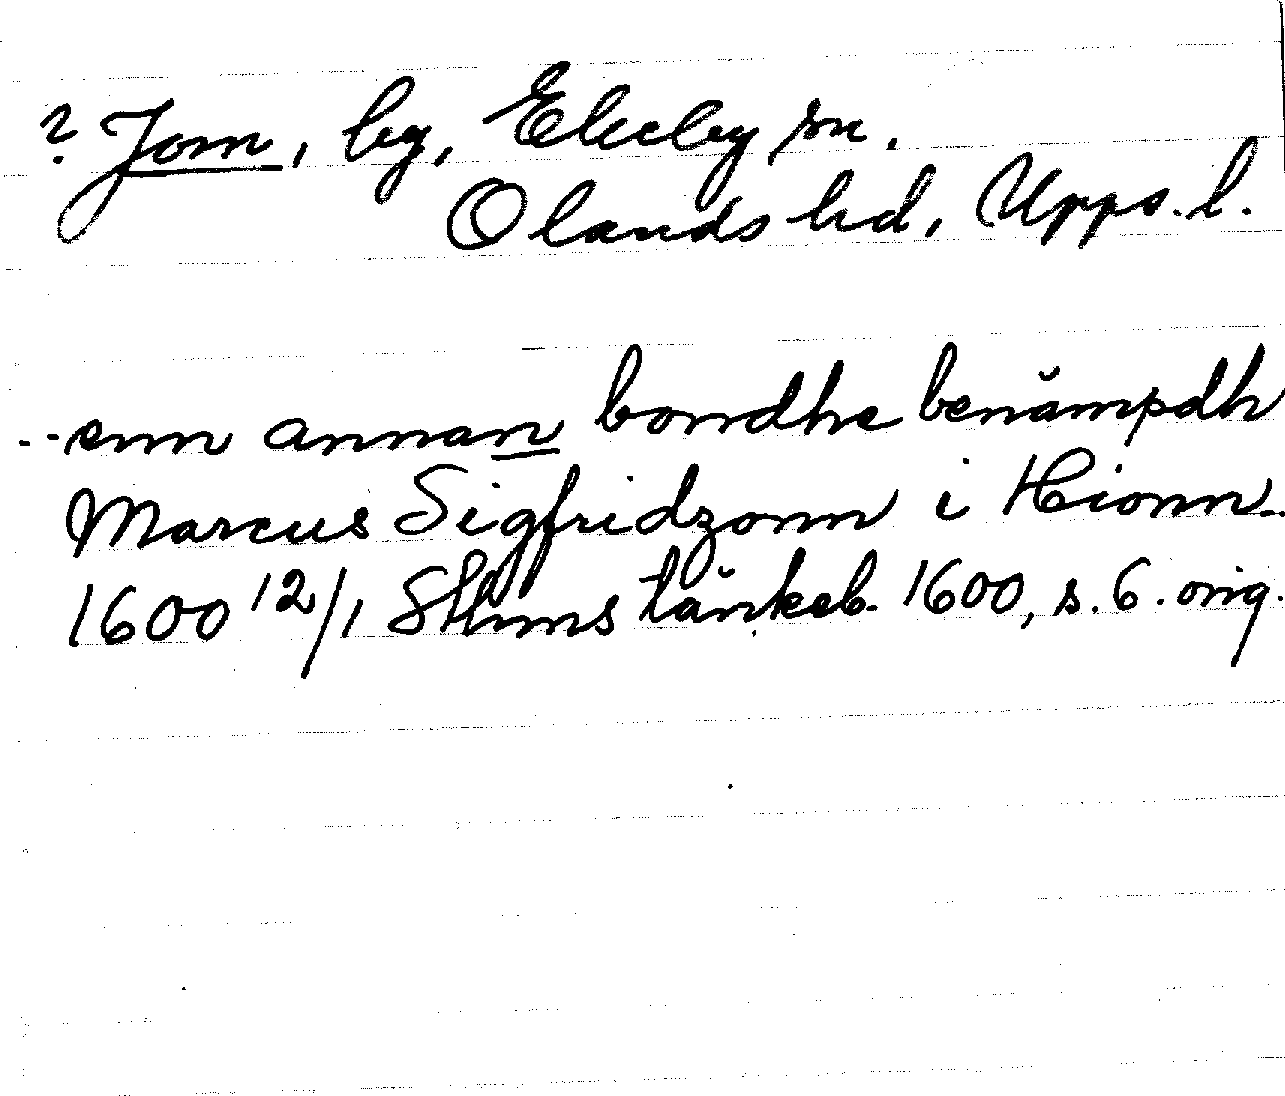 ? Jom, by, Ekeby sn.
Olands hd, Upps. l.
--enn annan bondhe benämpdh
Marcus Sigfridzonn i Hionn.
1600 12/1 Sthms tänkeb. 1600, s. 6. orig.